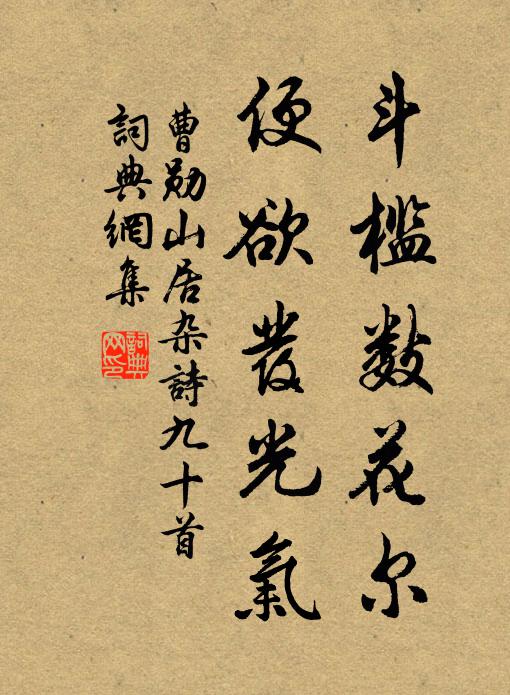 斗檻数花尔
便欲發光氣
曹勛山居杂詩九十首
詞典網集
詞典網印